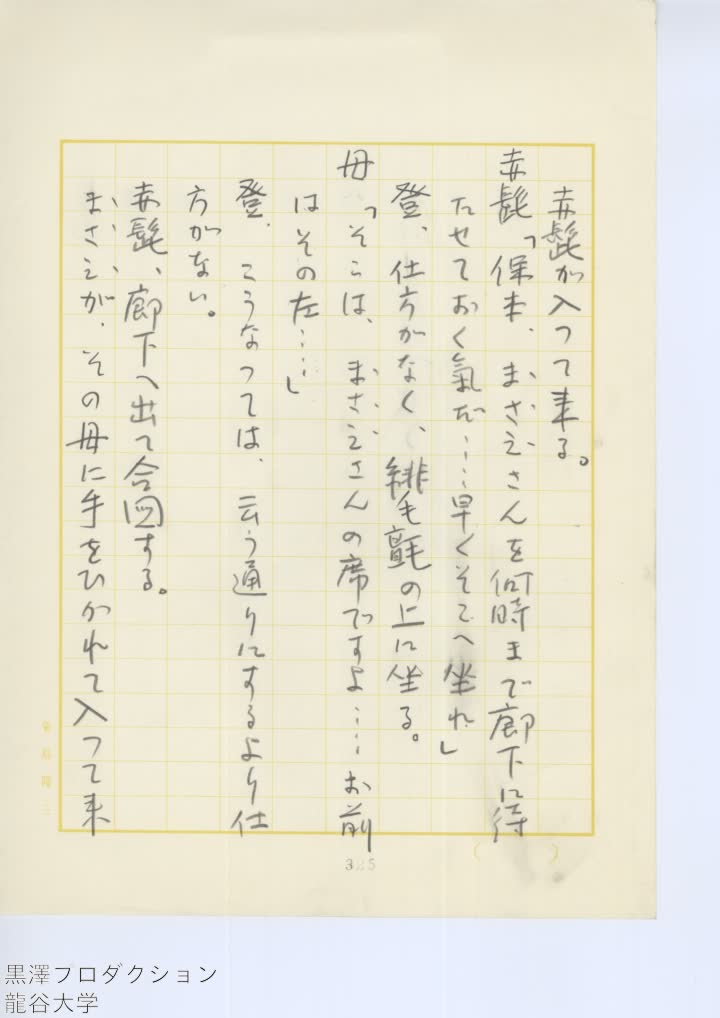 赤髭が入って来る。
赤髭「保本、まさえさんを何時まで廊下に待
たせておく氣だ……早くそこへ坐れ」
登、仕方がなく、緋毛氈の上に坐る。
母「そこは、まさえさんの席ですよ……お前
はその左……」
登、こうなつては、云う通りにするより仕
方がない。
赤髭、廊下へ出て合図する。
まさえが、その母に手をひかれて入って来
325
黒澤プロダクション
龍谷大学